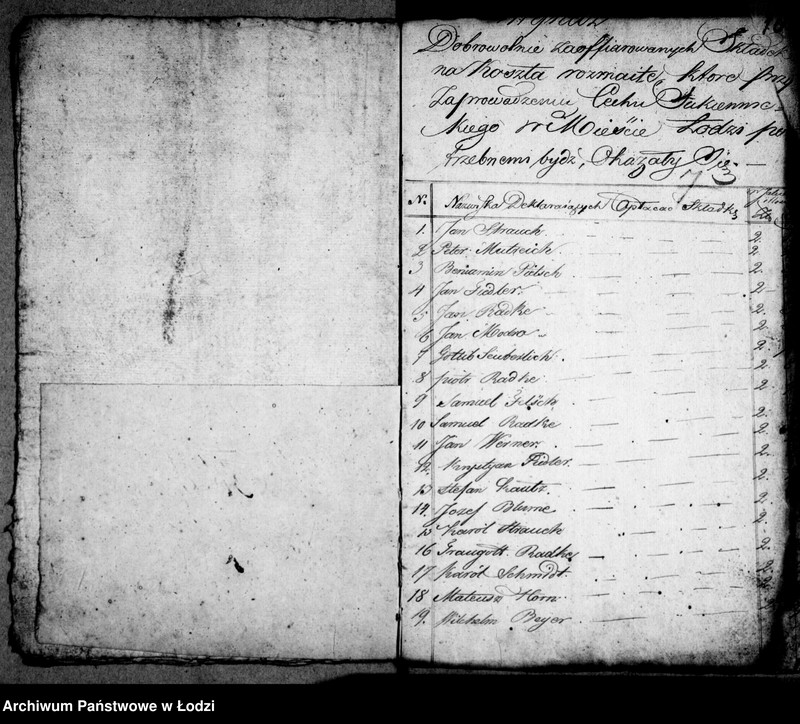 Dobrowolnie zaoffiarowanych Składek
na Koszta rozmaite, które przy
Zaprowadzeniu Cechu Sukienni-
kiego w Mieście Łodzi po
trzebnemi bydź, Okazały Się.
73
N. Nazwiska Deklaraiących Opłacać Składkę
1. Jan Strauch 2.
2 Peter 2.
3 Beniamin 2.
4 Jan Fidler. 2.
5 Jan Radke 2.
6 Jan 2.
7 Gotlib 2.
8 piotr Radke 2.
9 Samuel 2.
10 Samuel Radke 2.
11 Jan Werner. 2.
12. Krystjan Fidler. 2.
13 Stefan Kautz. 2.
14. Jozef Blume 2.
15 Karol Strauch 2.
16 Graugott Radke
17 Karól Schmidt.
18 Mateusz Horn.
19. Wilhelm Beyer
Archiwum Państwowe w Łodzi